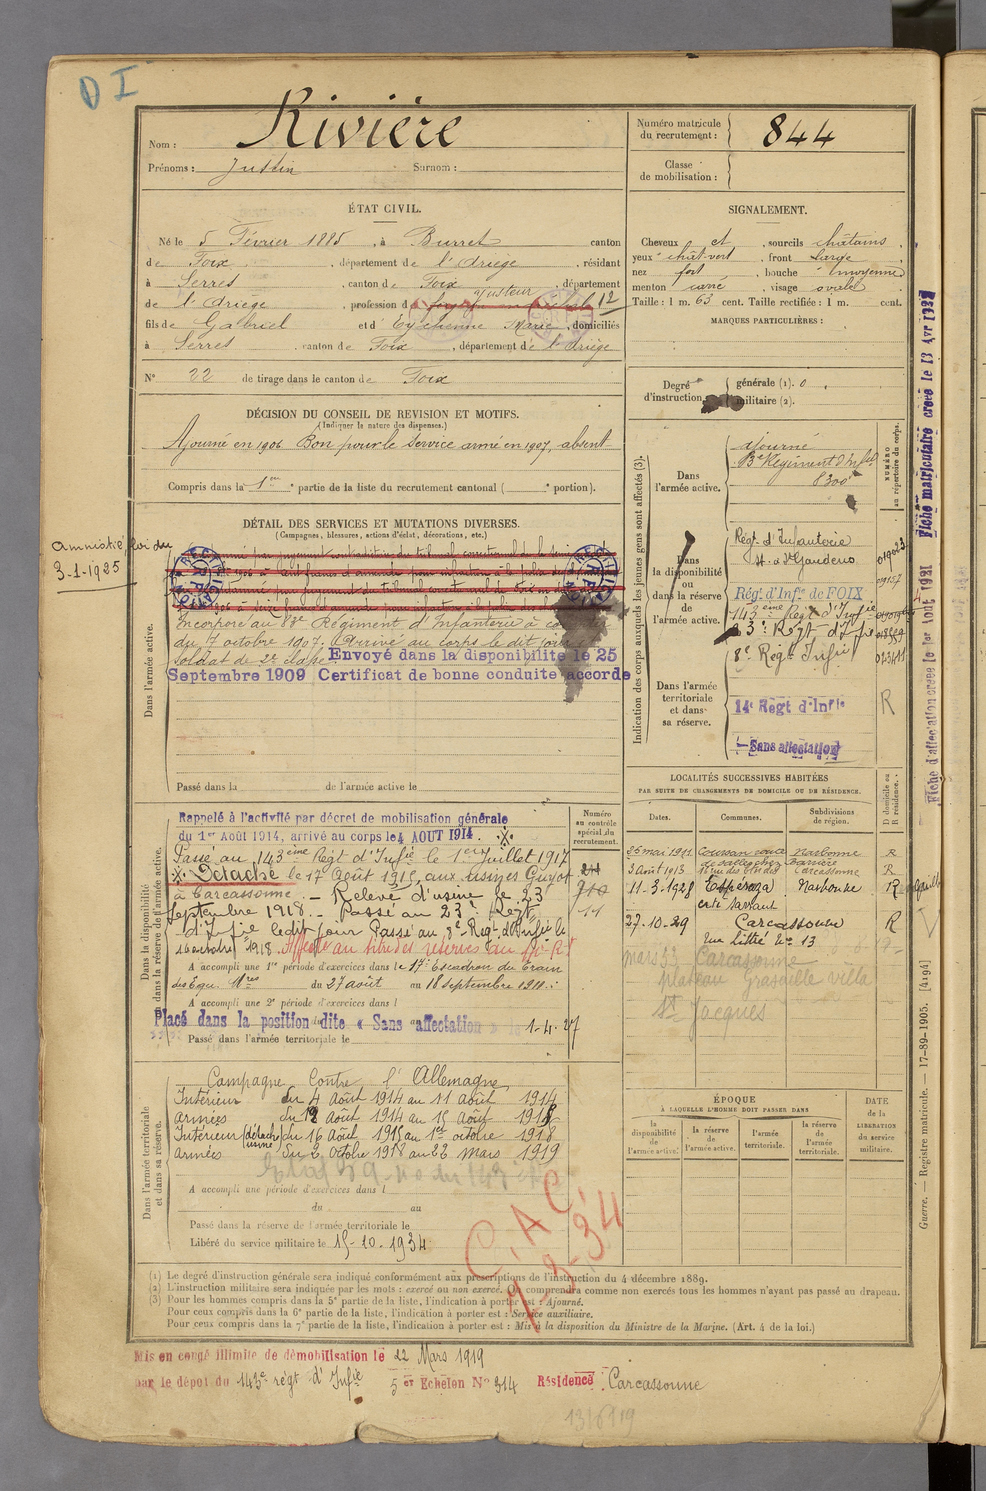 D I
Nom : Rivière
Prénoms : Justin Surnom :
Numéro matricule du recrutement : 844
Classe de mobilisation :
ÉTAT CIVIL.
Né le 5 Février 1885, à Burret canton
de Foix, département de l'Ariège, résidant
à Serres, canton de Foix, département
de l'Ariège, profession d ajusteur 12
fils de Gabriel et d'Eychenne Marie, domiciliés
à Serres canton de Foix, département de l'Ariège
N° 22 de tirage dans le canton de Foix
SIGNALEMENT.
Cheveux et, sourcils châtains,
yeux chât-vert, front large
nez fort, bouche moyenne
menton carré, visage ovale
Taille : 1 m. 63 cent. Taille rectifiée : 1 m. cent.
MARQUES PARTICULIÈRES :
Degré d'instruction générale (1). 0
militaire (2).
DÉCISION DU CONSEIL DE REVISION ET MOTIFS.
(Indiquer la nature des dispenses.)
Ajourné en 1906 Bon pour le service armé en 1907, absent
Compris dans la 1ère partie de la liste du recrutement cantonal ( e portion).
DÉTAIL DES SERVICES ET MUTATIONS DIVERSES.
(Campagnes, blessures, actions d'éclat, décorations, etc.)
amnistié loi du
3-1-1925
Dans l'armée active.
Incorporé au 83e Régiment d'Infanterie à compter
du 7 octobre 1907. Arrivé au corps le dit jour
soldat de 2e classe. Envoyé dans la disponibilité le 25
Septembre 1909 Certificat de bonne conduite accordé
Passé dans la de l'armée active le
Indication des corps auxquels les jeunes gens sont affectés (3).
NUMÉRO au répertoire du corps.
Dans l'armée active.
ajourné
83e Régiment d'Infie
8300
Dans la disponibilité ou dans la réserve de l'armée active.
Régt d'Infanterie
St Gaudens
Rég. d'Infie de FOIX
143ème Régt d'Infie
23e Régt d'Infie
8e Régt Infie
Dans l'armée territoriale et dans sa réserve.
14e Régt d'Infie
R
Sans affectation
LOCALITÉS SUCCESSIVES HABITÉES
PAR SUITE DE CHANGEMENTS DE DOMICILE OU DE RÉSIDENCE.
D domicile ou R résidence.
Dates. Communes. Subdivisions de région.
25 mai 1911 Coursan Narbonne R
3 Août 1913 Carcassonne R
11-3-1928 Espéraza Narbonne R
27-10-29 Carcassonne R
Rue Littré No 13
mars 33 Carcassonne
plateau Grazaille villa
St Jacques
Dans la disponibilité et dans la réserve de l'armée active.
Numéro au contrôle spécial du recrutement.
Rappelé à l'activité par décret de mobilisation générale
du 1er Août 1914, arrivé au corps le 4 AOUT 1914.
Passé au 143ème Régt d'Infie le 1er Juillet 1917
Détaché le 17 août 1915, aux usines Guyot
à Carcassonne. - Relevé d'usine le 23
septembre 1918. - Passé au 23e Régt
d'Infie ledit jour Passé au 8e Régt d'Infie le
16 octobre 1918.
A accompli une 1re période d'exercices dans le 17e Escadron du Train
des Equ. Mres du 27 août au 18 septembre 1911.
A accompli une 2e période d'exercices dans l
du au
Placé dans la position dite « Sans affectation » le 1-4-27
Passé dans l'armée territoriale le
Dans l'armée territoriale et dans sa réserve.
Campagne Contre l'Allemagne
Intérieur du 4 Août 1914 au 11 août 1914
Armées du 12 Août 1914 au 15 Août 1915
Intérieur (détaché usine) du 16 Août 1915 au 1er octobre 1918
Armées du 2 Octobre 1918 au 22 mars 1919
A accompli une période d'exercices dans l
du au
Passé dans la réserve de l'armée territoriale le
Libéré du service militaire le 15-10-1934
C.A.C
ÉPOQUE
À LAQUELLE L'HOMME DOIT PASSER DANS
la disponibilité de l'armée active.
la réserve de l'armée active.
l'armée territoriale.
la réserve de l'armée territoriale.
DATE de la LIBÉRATION du service militaire.
(1) Le degré d'instruction générale sera indiqué conformément aux prescriptions de l'instruction du 4 décembre 1889.
(2) L'instruction militaire sera indiquée par les mots : exercé ou non exercé. On comprendra comme non exercés tous les hommes n'ayant pas passé au drapeau.
(3) Pour les hommes compris dans la 5e partie de la liste, l'indication à porter est : Ajourné.
Pour ceux compris dans la 6e partie de la liste, l'indication à porter est : Service auxiliaire.
Pour ceux compris dans la 7e partie de la liste, l'indication à porter est : Mis à la disposition du Ministre de la Marine. (Art. 4 de la loi.)
Mis en congé illimité de démobilisation le 22 Mars 1919
par le dépôt du 143e régt d'Infie 5e Echelon N° 314 Résidence Carcassonne
Fiche d'affectation créée le 1er Août 1921 Fiche matriculaire créée le 13 Avr 1932
Guerre. — Registre matricule. — 17-89-1905. [4194]